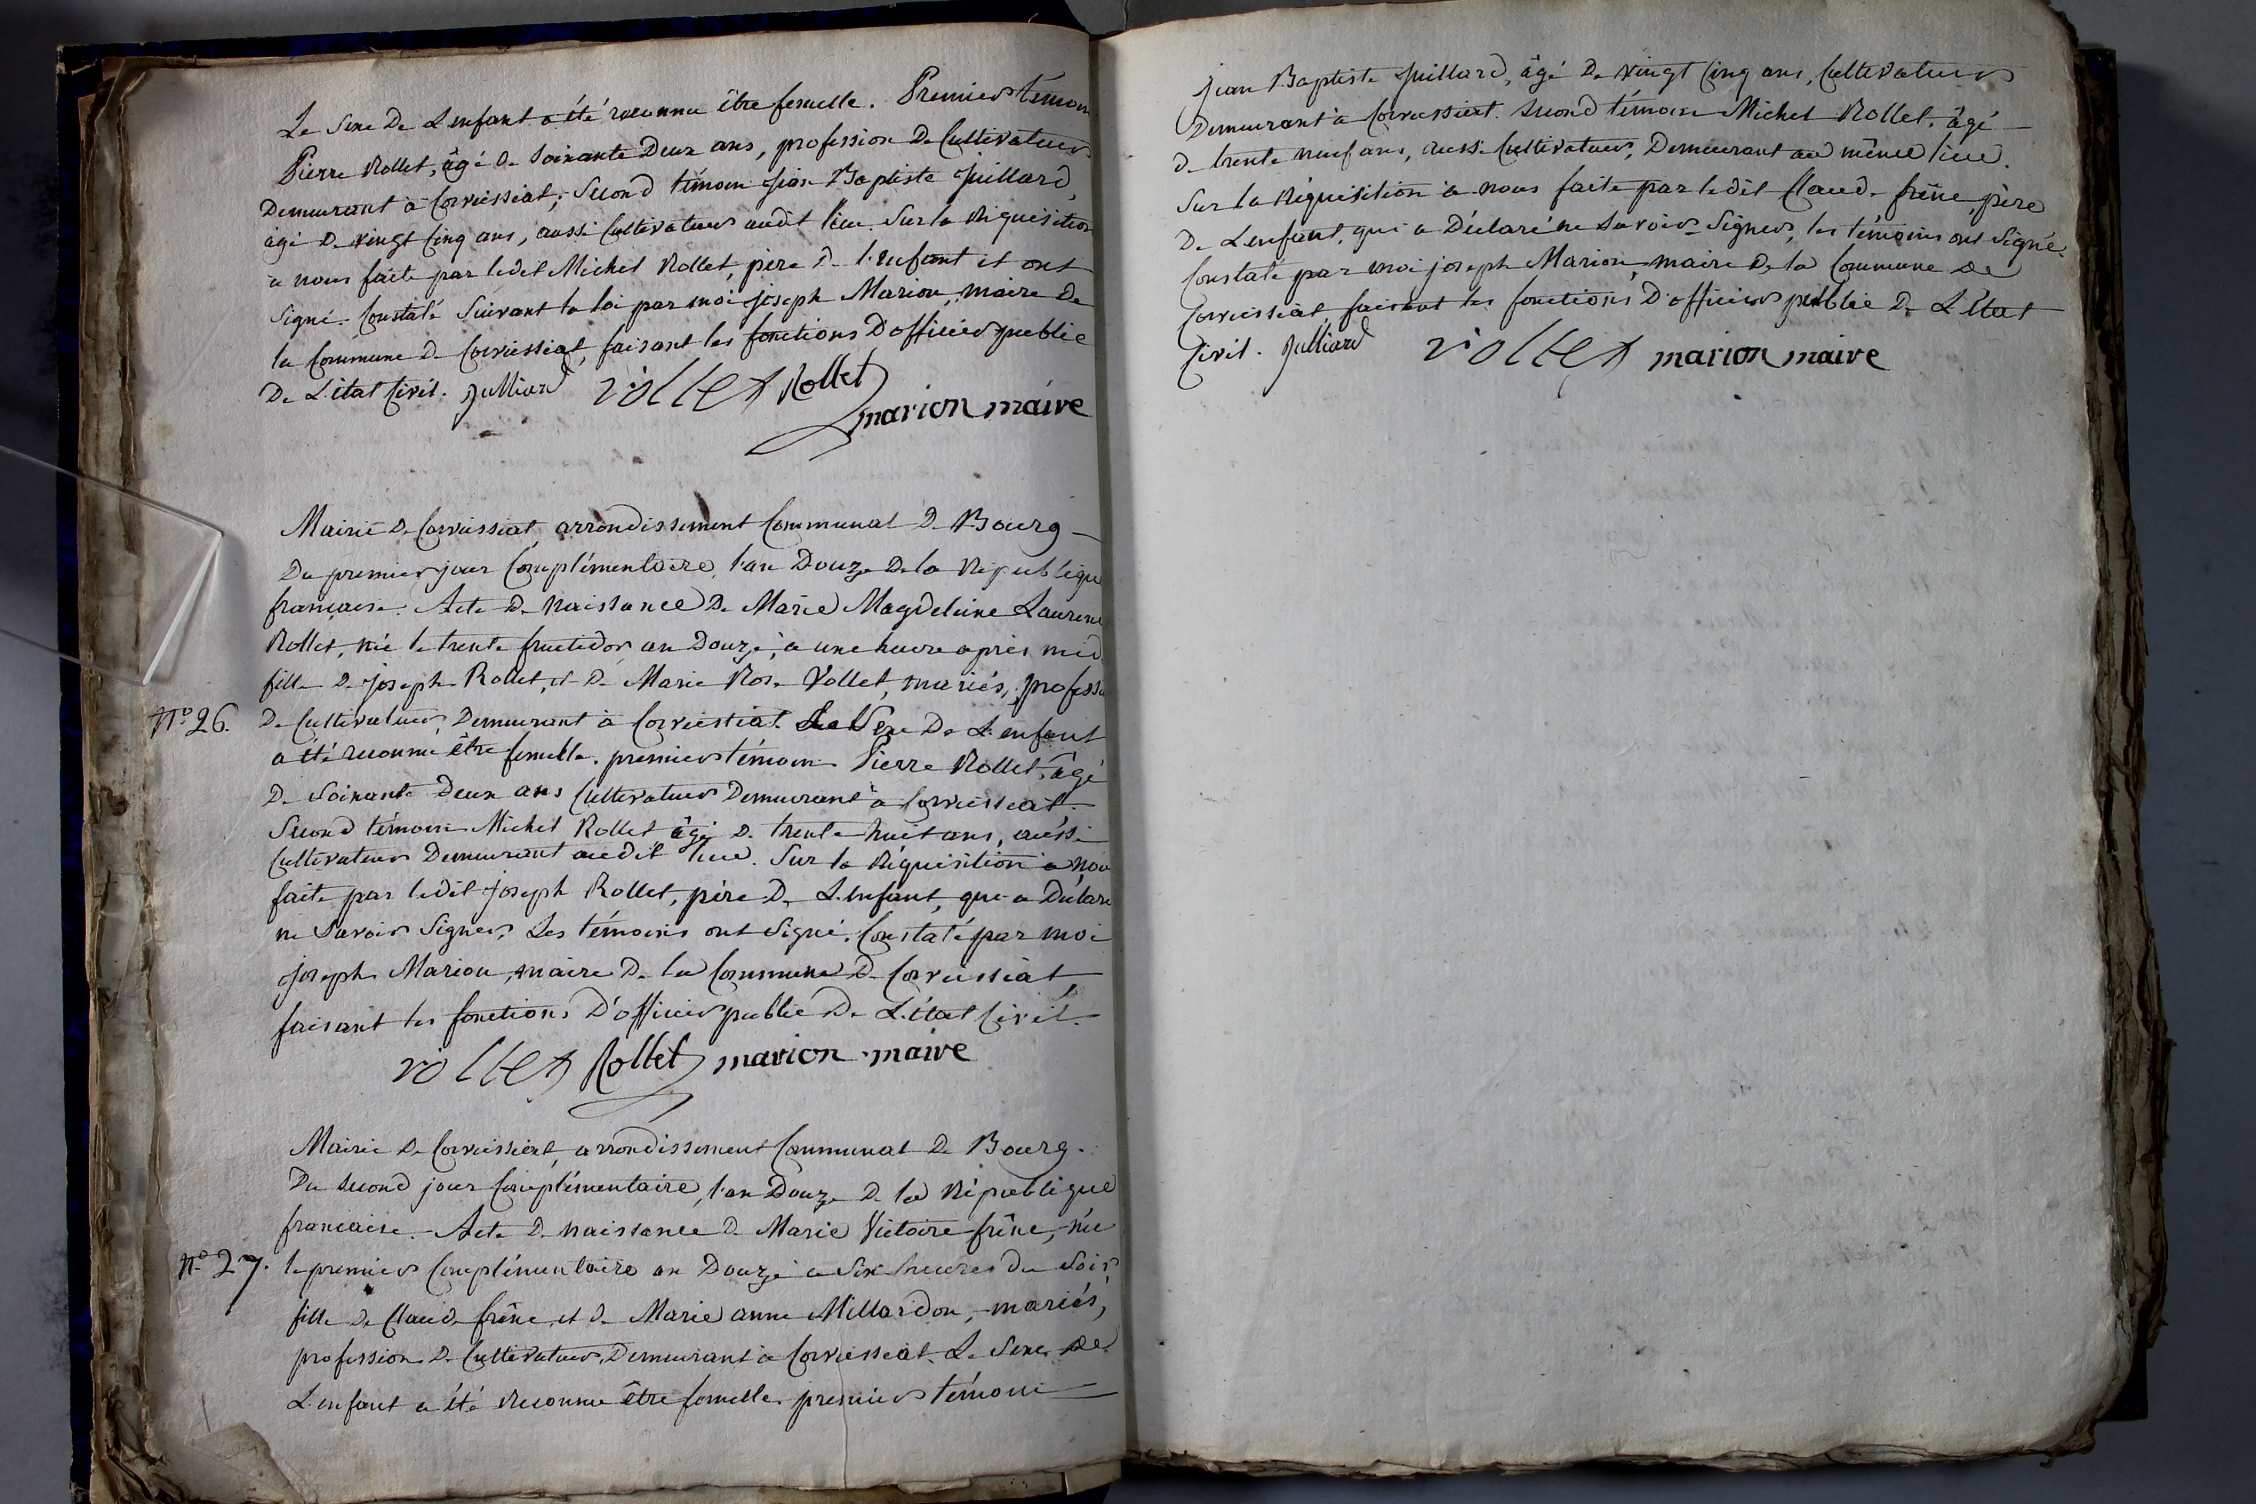 Le Sexe De L'enfant a été reconnu être femelle. Premier témoin
Pierre Rollet, âgé de Soixante Deux ans, profession De Cultivateur
Demeurant à Corveissiat; Second témoin Jean Baptiste Juillard,
âgé De vingt Cinq ans, aussi Cultivateur audit lieu. Sur la Réquisition
à nous faite par ledit Michel Rollet, père De l'enfant et ont
Signé. Constaté Suivant la loi par moi joseph Marion, maire De
la Commune De Corveissiat, faisant les fonctions D'officier public
De L'état Civil. Julliard rollet Rollet
marion maire
Mairie De Corveissiat, arrondissement Communal De Bourg
Du premier jour Complémentaire, l'an Douze De la République
française. Acte De naissance De Marie Magdeleine Laurence
Rollet, née le trente fructidor an Douze, à une heure après mid
fille De joseph Rollet, et De Marie Rose Vollet, mariés, profess
N.º 26. De Cultivateur, Demeurant à Corveissiat. Le Sexe De L'enfant
a été reconnu être femelle. premier témoin Pierre Rollet, âgé
De Soixante Deux ans Cultivateur Demeurant à Corveissiat.
Second témoin Michel Rollet âgé De trente huit ans, aussi
Cultivateur Demeurant audit lieu. Sur la Réquisition à nou
faite par ledit joseph Rollet, père De L'enfant, qui a Déclaré
ne Savoir Signer, Les témoins ont Signé. Constaté par moi
joseph Marion, maire De la Commune De Corveissiat,
faisant les fonctions D'officier public De L'état Civil.
rollet Rollet marion maire
Mairie De Corveissiat, arrondissement Communal De Bourg.
Du Second jour Complémentaire, l'an Douze De la République
française. Acte De naissance De Marie Victoire frêne, née
N.º 27. le premier Complémentaire an Douze à Six heures Du Soir
fille De Claude frêne, et De Marie anne Millardon, mariés,
profession De Cultivateur, Demeurant à Corveissiat. Le Sexe De
L'enfant a été Reconnu être femelle. premier témoin
jean Baptiste Juillard, âgé De vingt Cinq ans, Cultivateur
Demeurant à Corveissiat. Second témoin Michel Rollet, âgé
De trente neuf ans, aussi Cultivateur, Demeurant au même lieu.
Sur la Réquisition à nous faite par ledit Claude frêne, père
De L'enfant, qui a Déclaré ne Savoir Signer, les témoins ont Signé.
Constaté par moi joseph Marion, maire De la Commune De
Corveissiat faisant les fonctions D'officier public De L'état
Civil. Julliard rollet marion maire